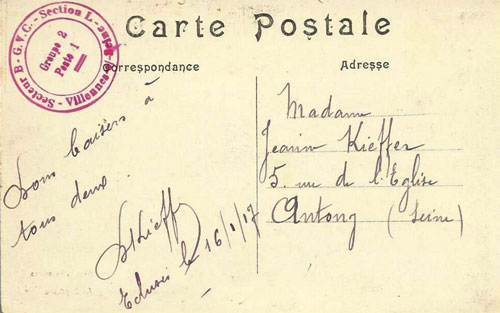 Carte Postale
Correspondance
Adresse
Secteur B - G.V.C. - Section L - Villennes
Groupe 2
Poste 1
Bons baisers à
tous deux.
Kieffer
Ecluses le 16/1/17
Madame
Jeann Kieffer
5. rue de l'Eglise
Antony (Seine)